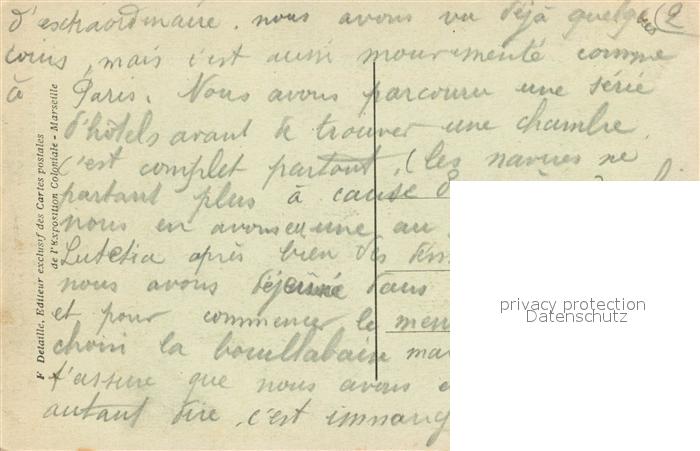 d'eschraordinaire. nous avons vu déjà quelques (2
coins, mais c'est aussi mouvementé comme
à Paris. Nous avons parcouru une série
d'hôtels avant de trouver une chambre.
C'est complet partout, (les navires ne
partant plus à cause
nous en avons eu une au
Lutetia après bien des
nous avons déjeuné dans
et pour commencer le menu
choisi la bouillabaise
t'assure que nous avons
autant dire, c'est immang
F Detaille, Editeur exclusif des Cartes postales
de l'Exposition Coloniale - Marseille
privacy protection
Datenschutz